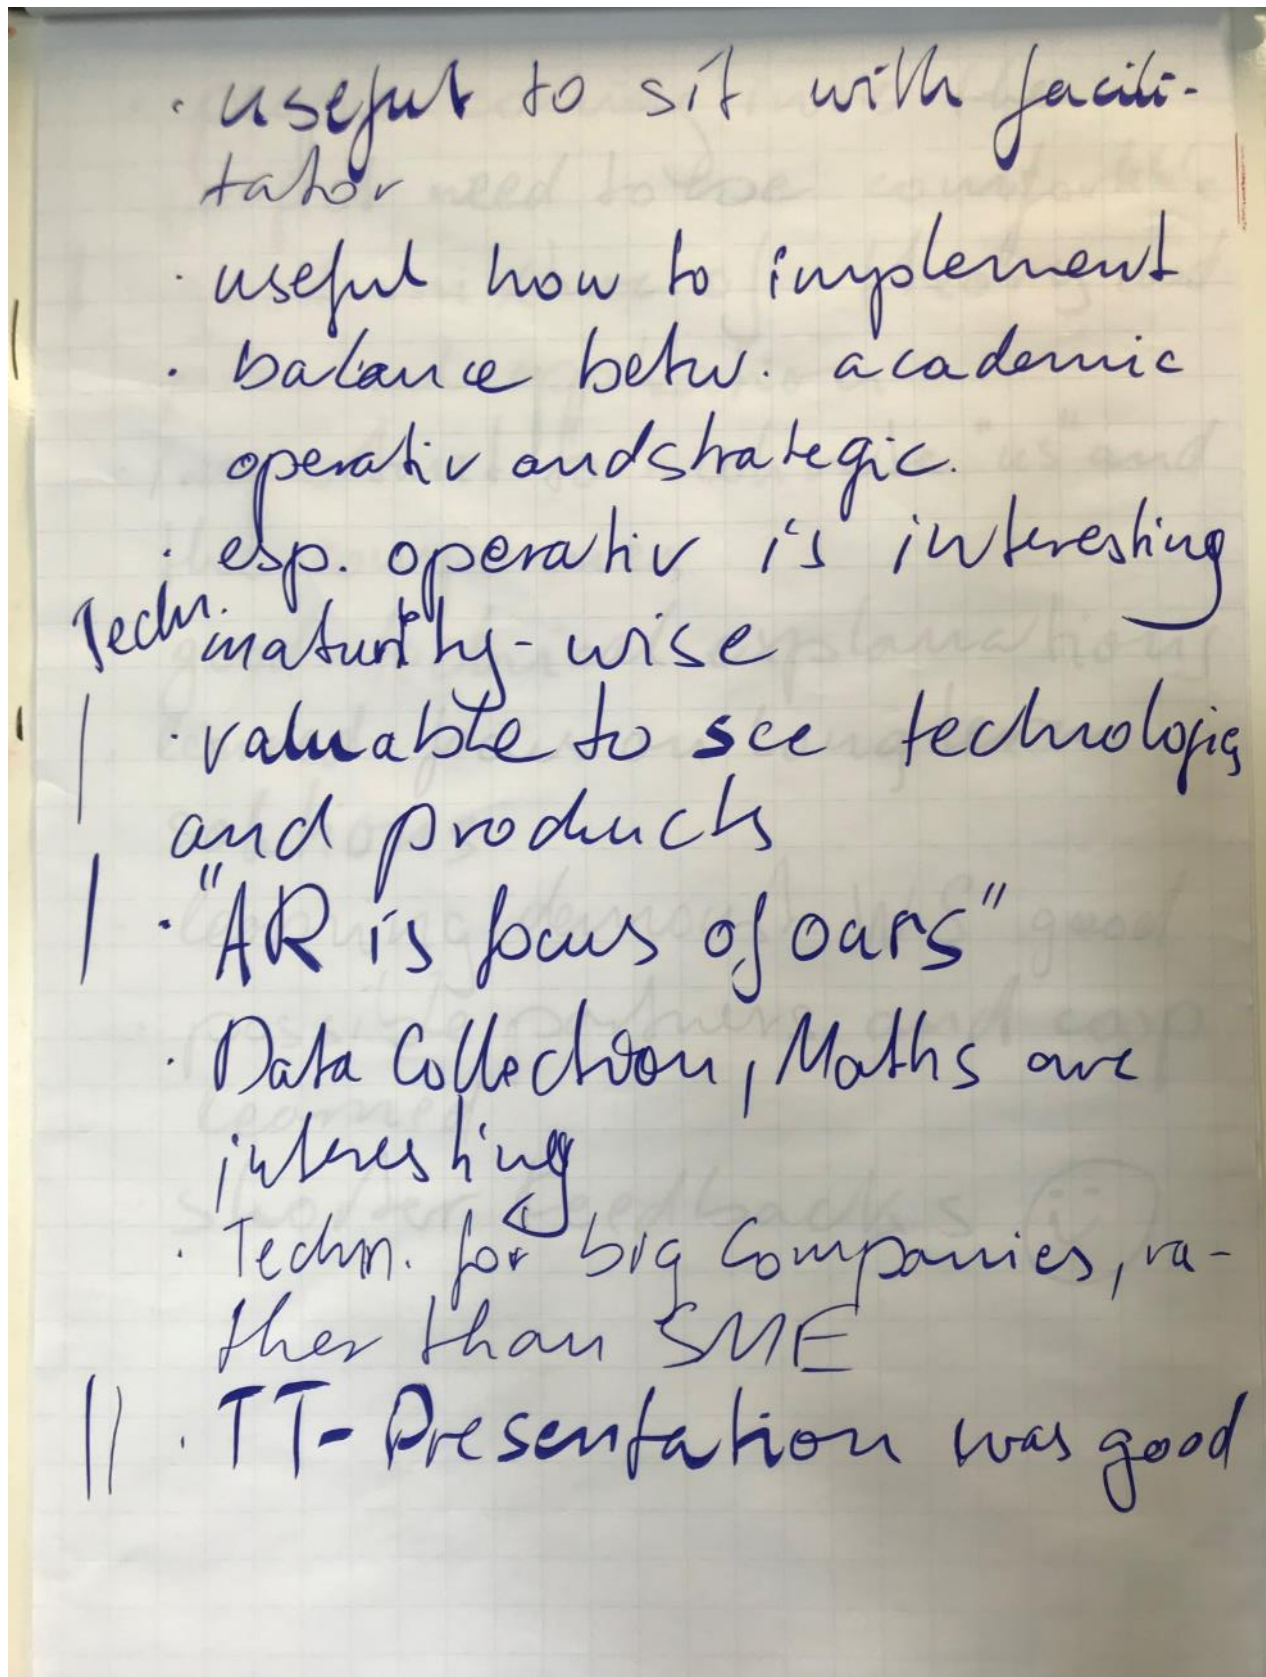 · useful to sit with facili-
tator
· useful how to implement
· balance betw. academic
operativ and strategic.
· esp. operativ is interesting
Techn. maturity-wise
· valuable to see technologies
and products
· "AR is focus of ours"
· Data Collection, Maths are
interesting
· Techn. for big Companies, ra-
ther than SME
· TT-Presentation was good